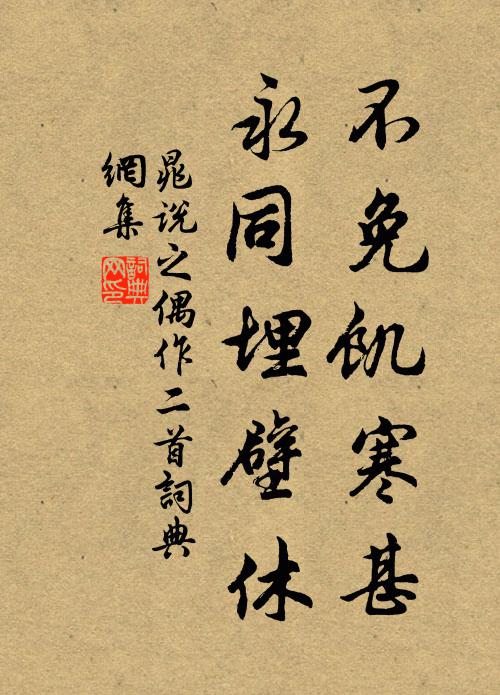 不免飢寒甚
永同埋壁休
晁说之偶作二首詞典
網集
詞典
网印